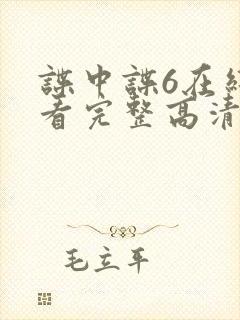 諜中諜6在線
看完整高清
毛立平